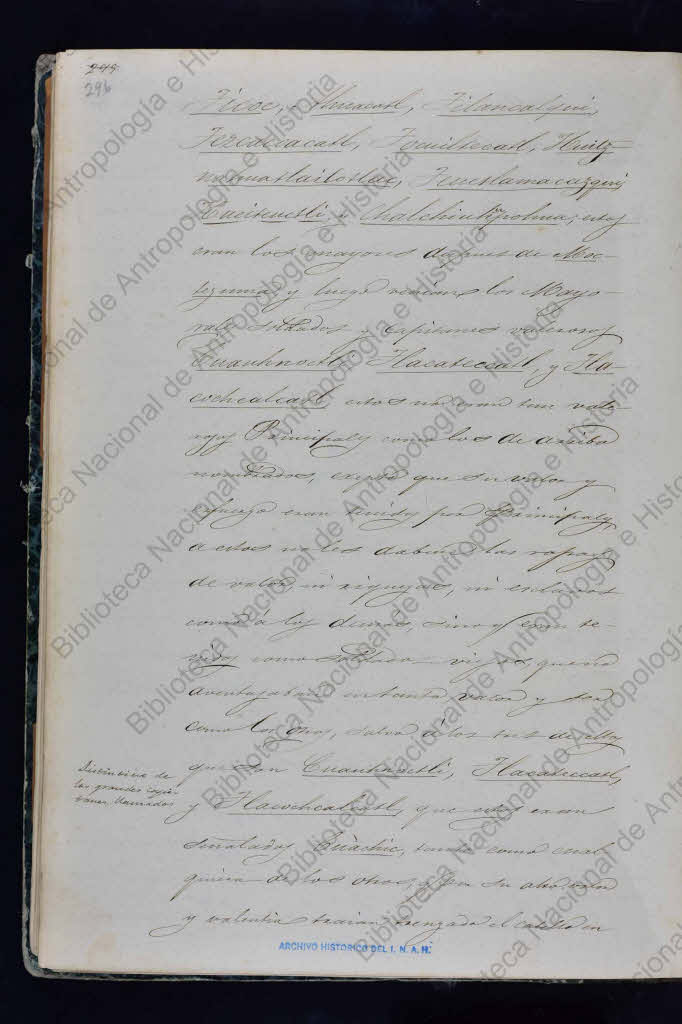 249
296
Ticoc, Tilancalqui,
Tezcacoacatl, Tocuiltecatl, Huitz
nahuatlailotlac, Teuctlamacazqui,
y Chalchiuh; estos
eran los mayores despues de Moc-
tezuma y luego venian, los Mayo-
rales soldados y capitanes valerosos
Cuauhnoctli Tlacateccatl, y Tla-
cochcalcatl, estos no eran tan vale-
rosos Principales como los de arriba
nombrados, exepto que su valor y
esfuerzo eran tenidos por Principales,
a estos no les daban las ropas
de valor, ni riquezas, ni esclavos
como á los demás, sino q eran te-
nidos como soldados viejos, que no
aventajaban en tanto valor y ser
como los otros, salvo á los tres de ellos
que son Cuauhnoctli, Tlacateccatl,
y Tlacochcalcatl, que estos eran
señalados Cuachic, tanto como cual
quiera de los otros, y por su alto valor
y valentia traian trenzado el cabello en
Distincion de
los grandes capi-
tanes llamados
ARCHIVO HISTORICO DEL I. N. A. H.
Biblioteca Nacional de Antropología e Historia